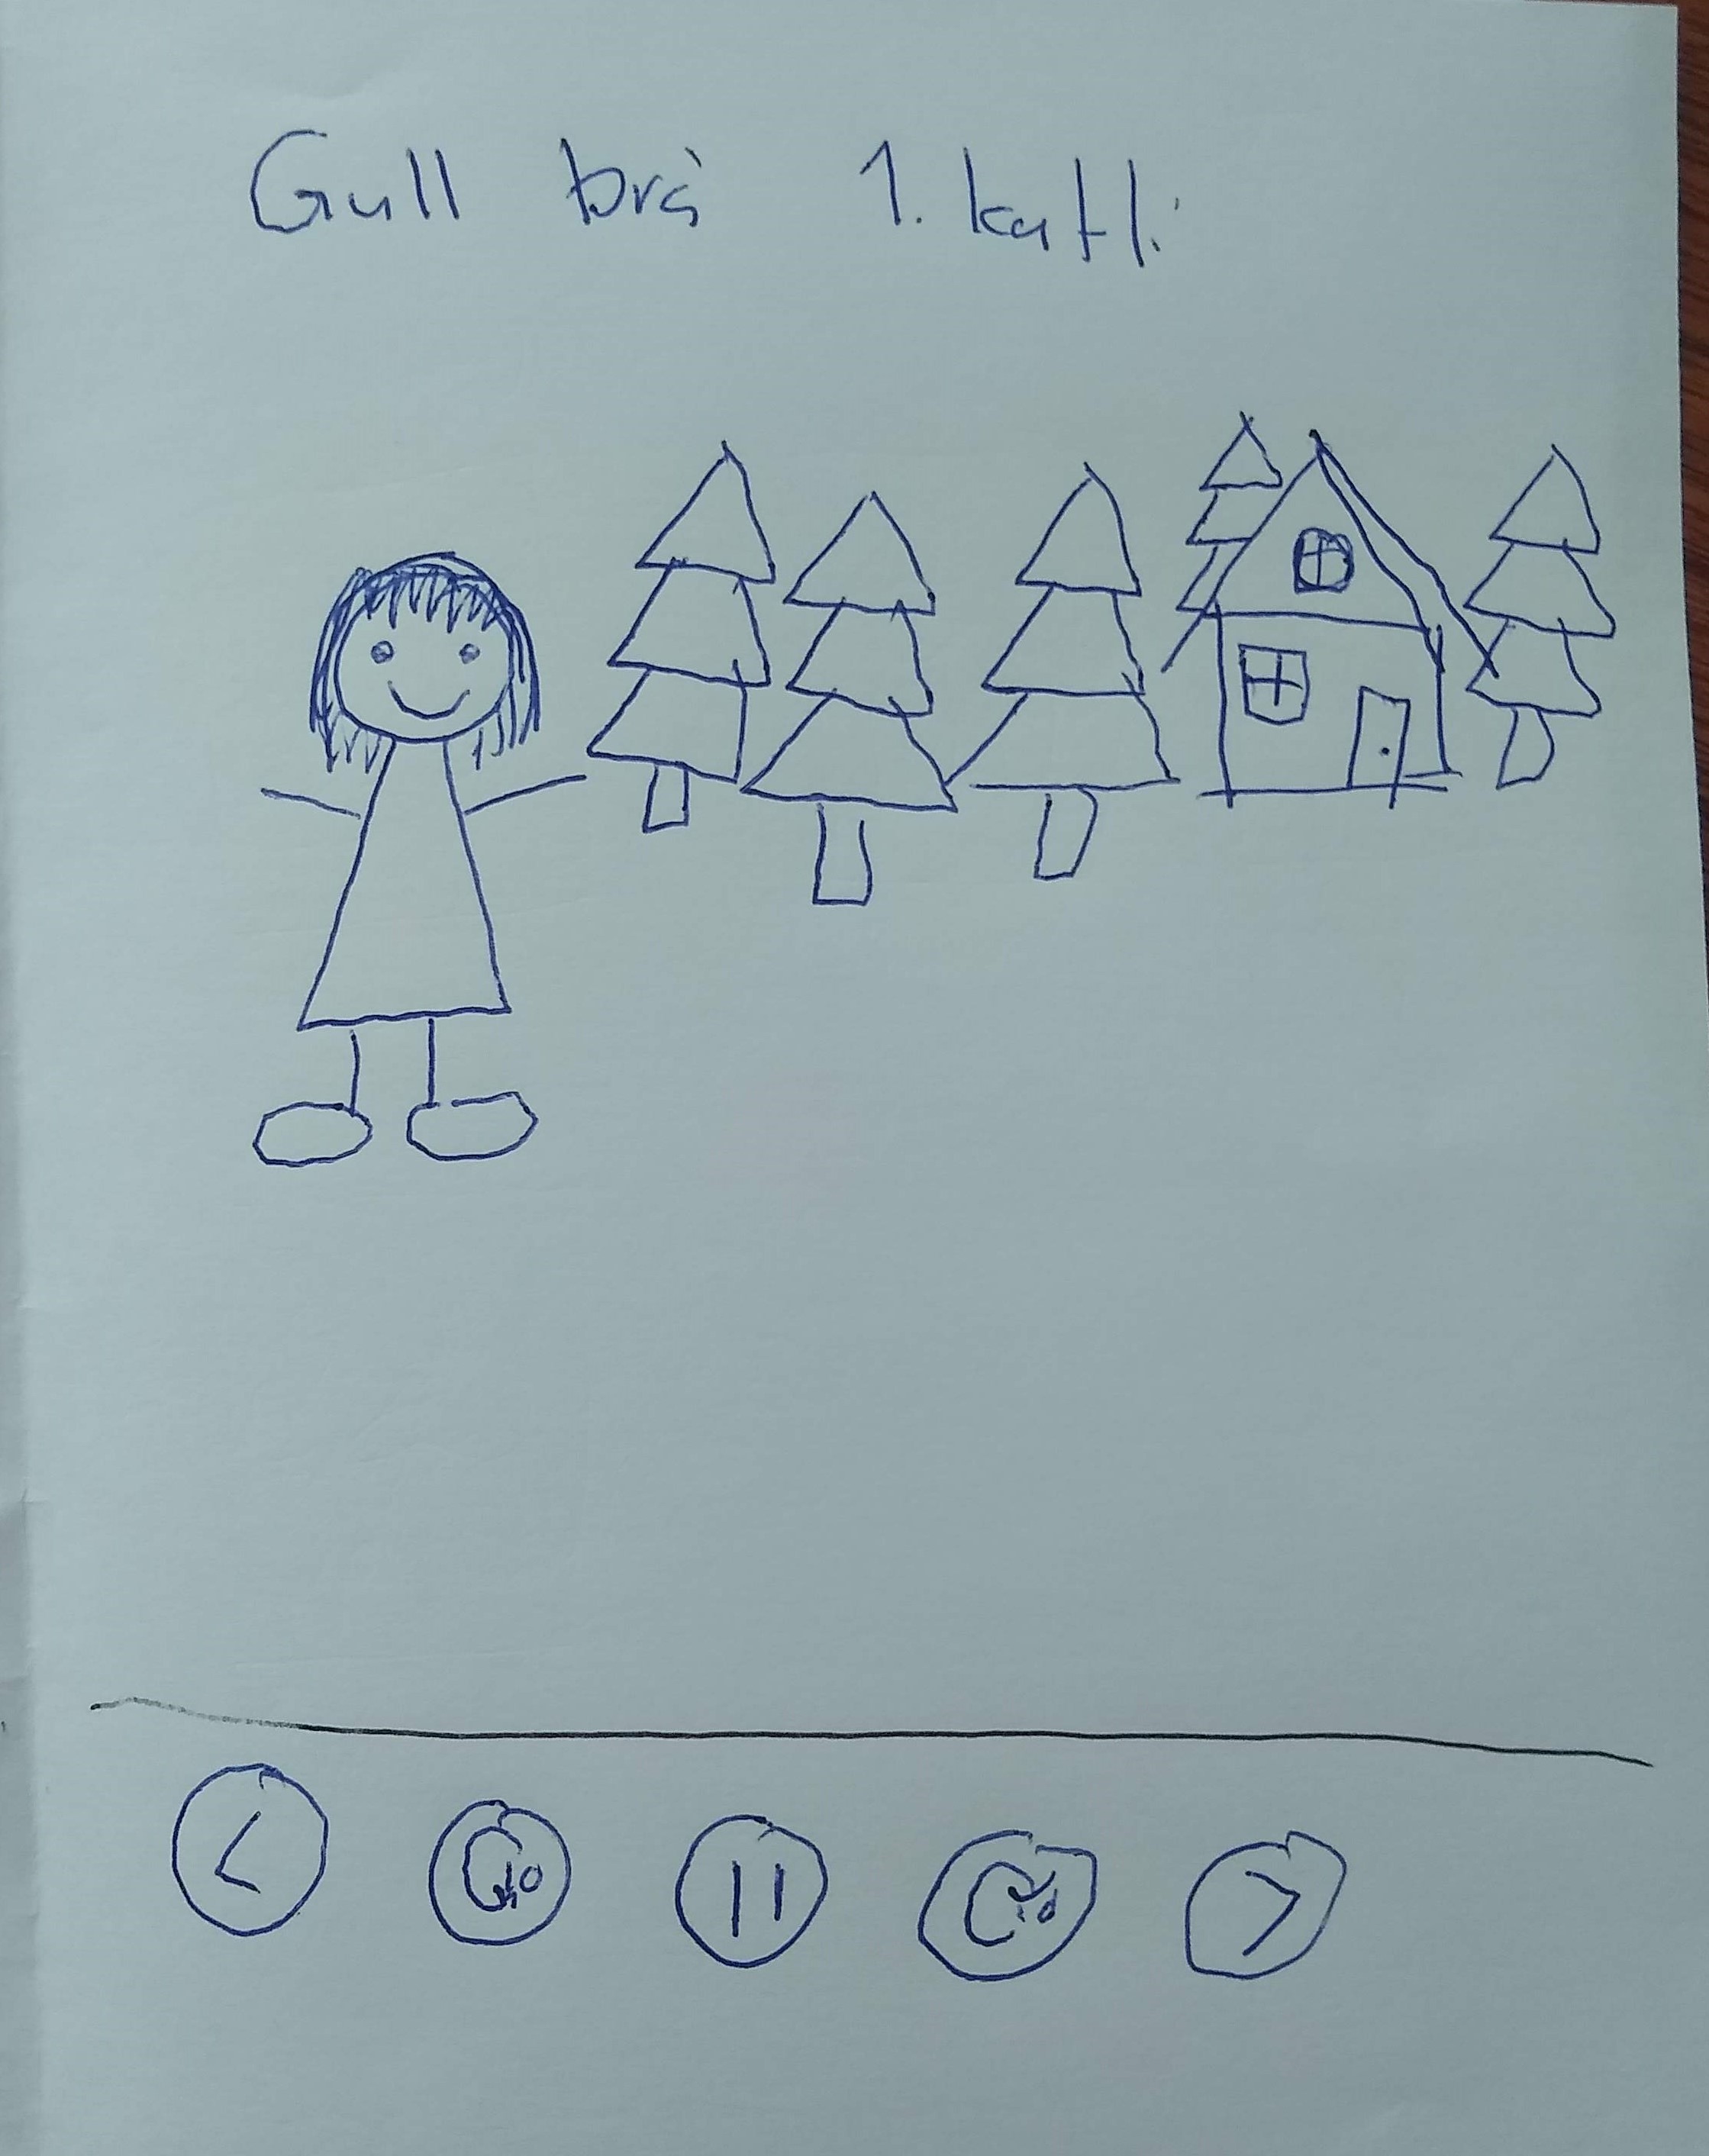 Gull brá 1. kafli
10 10